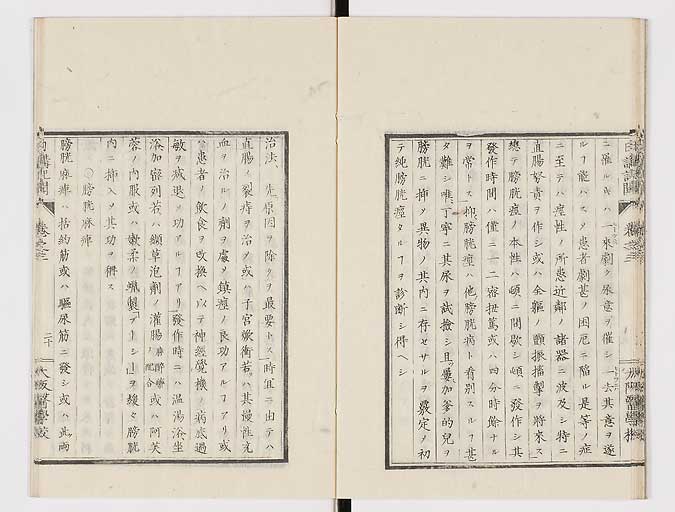 ニ罹ルキハ一來劇ク尿意ヲ催シ去其意ヲ遂
ルフ能ハス患者劇甚ノ困厄ニ陥ル是等ノ症
ニ至テハ痙性ノ所患近鄰ノ諸器ニ波及シ特ニ
直腸努責ヲ作シ或ハ全軀ノ顫振搐掣ヲ將來ス
總テ膀胱痙ノ本性ハ頓ニ間歇シ頓ニ發作シ其
發作時間ハ僅ニ一二密扭篤或ハ四分時餘ナル
ヲ常トス抑膀胱痙ハ他膀胱病ト看別スルフ甚
タ難シ唯丁寧ニ其尿ヲ試撿シ且屢加爹的兒ヲ
膀胱ニ挿タ異物ノ其内ニ存セサルヲ覈定ノ初
テ純膀胱痙タルフヲ診斷シ得ヘシ
治法、先原因ヲ除クヲ最要トス時宜ニ由テハ
直腸ノ裂痔ヲ治ノ或ハ子宮嗽衝若ハ其慢性充
血ヲ治ルノ劑ヲ處ノ鎮痙ノ良功アルフアリ或
ハ患者ノ飲食ヲ改換ヘ以テ神經覺機ノ病底過
敏ヲ減退ノ功アルフアリ發作時ニハ温湯浴坐
浴加密列若ハ纈草泡劑ノ灌腸麻醉劑ノ配合或ハ阿芙
蓉ノ内服或ハ嫩柔ノ蠟製ブーシーヲ緩々膀胱
内ニ挿入ノ其功ヲ得ス
○膀胱麻痺
膀胱麻痺ハ括約筋或ハ驅尿筋ニ發シ或ハ此兩
卷之三
二十
大阪醫學校